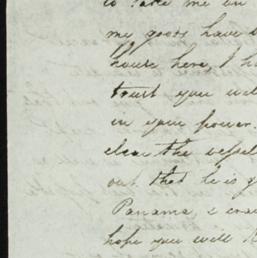 to take me on
my goods have
house here, I ha
trust you wil
in your power.
clear the vessel
out that he is g
Panama, I
hope you will